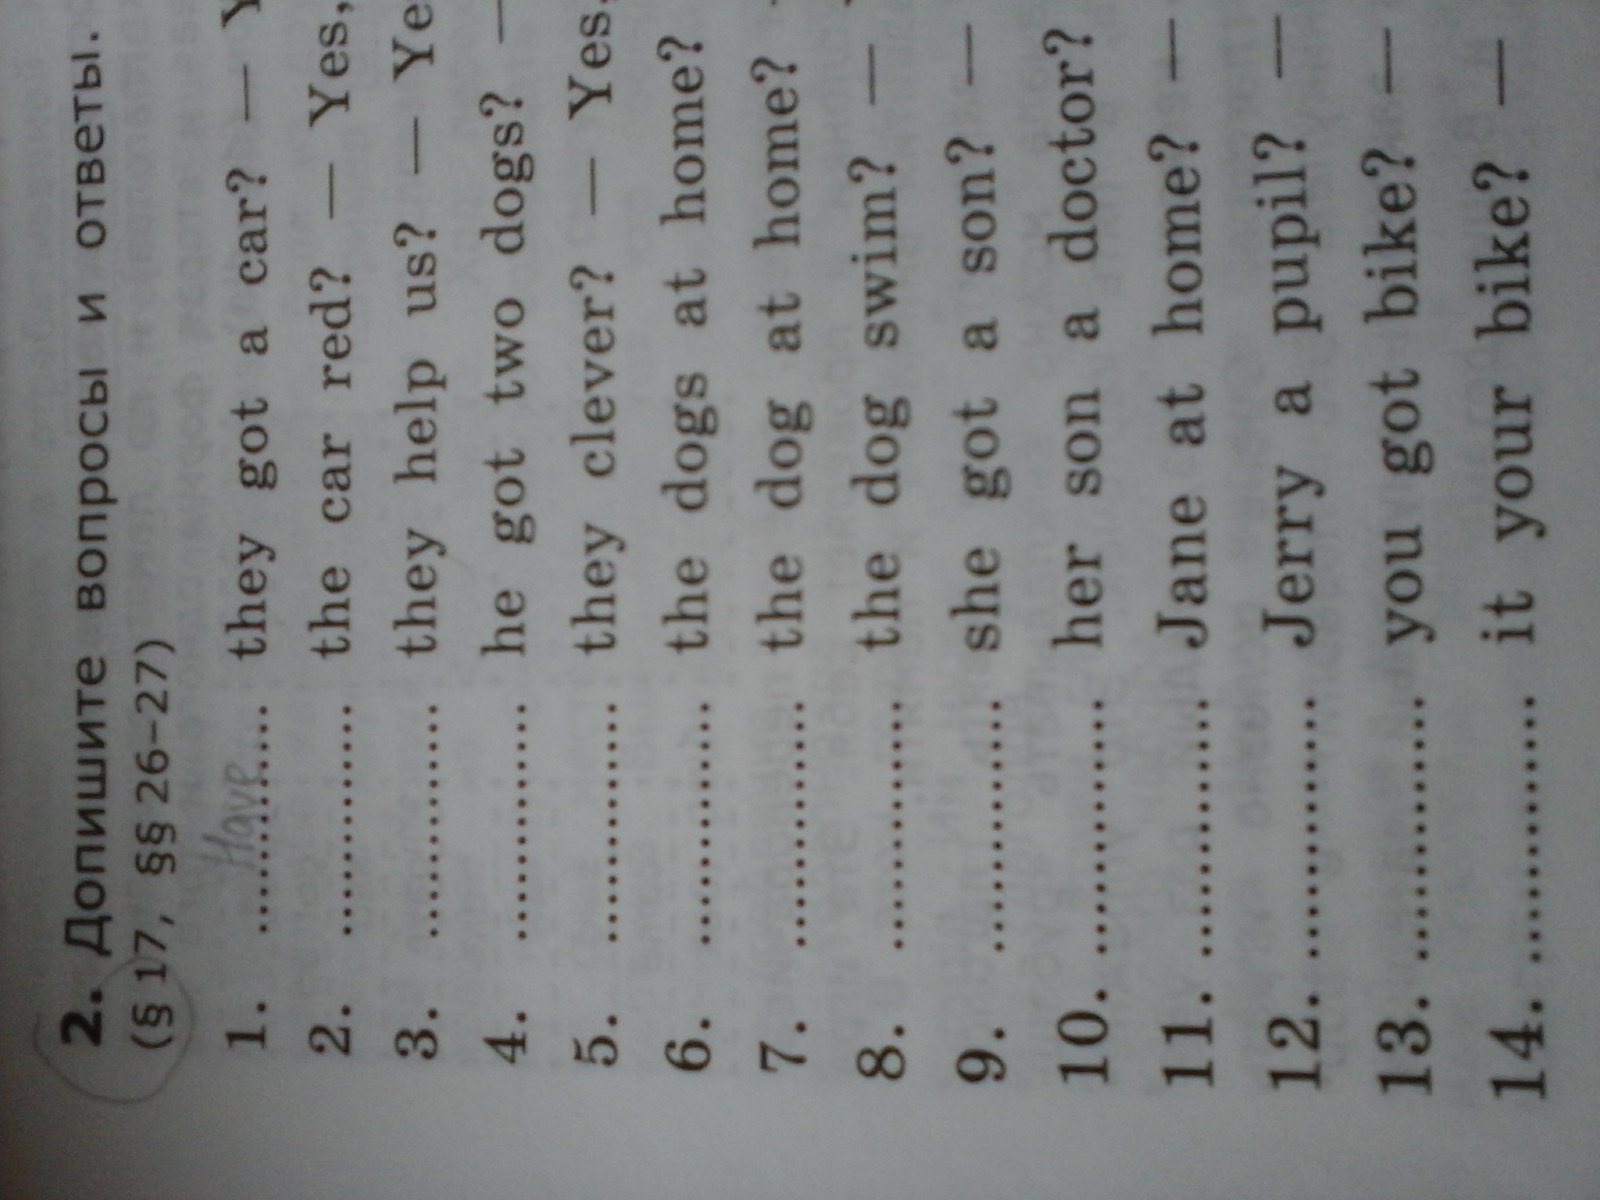 2. Допишите вопросы и ответы.
(§ 17, §§ 26–27)
1. Have they got a car? —
2. .................. the car red? — Yes,
3. .................. they help us? —
4. .................. he got two dogs? —
5. .................. they clever? — Yes,
6. .................. the dogs at home?
7. .................. the dog at home?
8. .................. the dog swim? —
9. .................. she got a son? —
10. .................. her son a doctor?
11. .................. Jane at home? —
12. .................. Jerry a pupil? —
13. .................. you got bike? —
14. .................. it your bike? —